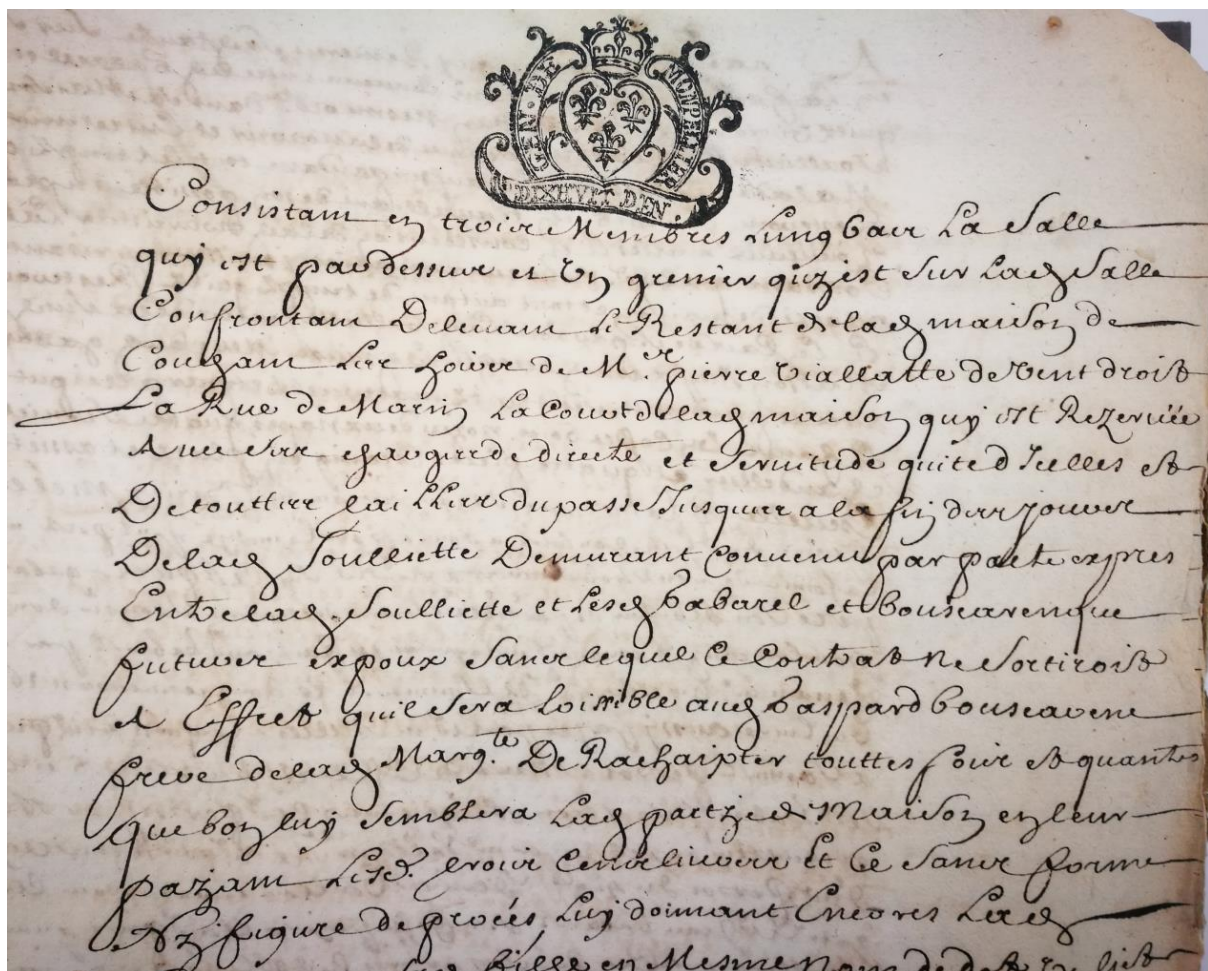 GEN · DE MONPELLIER
DIXHVIT DEN.
Consistant en trois Membres Lung bas La Salle
quy est par dessus et Un grenier quy est sur Lad Salle
Confrontant Delevant Le Restant de lad maison de
Couchant Les hoires de M.er pierre Viallatte de Vent droit
La Rue de Marin La Court de lad maison quy est Rezervée
Avec ses charges de directe et servitude quite d Icelles et
De touttes tailles du passe Jusques a la fin des jours
De lad Soulliette Demurant Convenu par pacte expres
Entre lad Soulliette et Lesd Gabarel et bouscarenque
futurs expoux sans lequel Ce Contrat Ne sortiroit
A Effect quil sera Loisible aud Gaspard bouscarene
frere de lad Marg.te De Rachaipter touttes fois et quantes
que bon luy semblera Lad partye de Maison en leur
payant Lesd. trois Cens livres Et Ce sans forme
Ny figure de procés, Luy donnant Encores Lad
fille en Mesme de